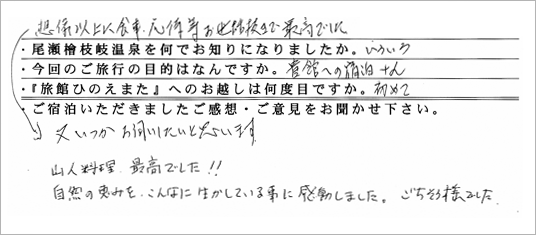 想像以上に食事、応待等お世話様で最高でした
・尾瀬檜枝岐温泉を何でお知りになりましたか。いろいろ
・今回のご旅行の目的はなんですか。貴館への宿泊
・『旅館ひのえまた』へのお越しは何度目ですか。初めて
・ご宿泊いただきましたご感想・ご意見をお聞かせ下さい。
又いつかお伺いしたいと思います
山人料理 最高でした!!
自然の恵みを、こんなに生かしている事に感動しました。ごちそう様でした